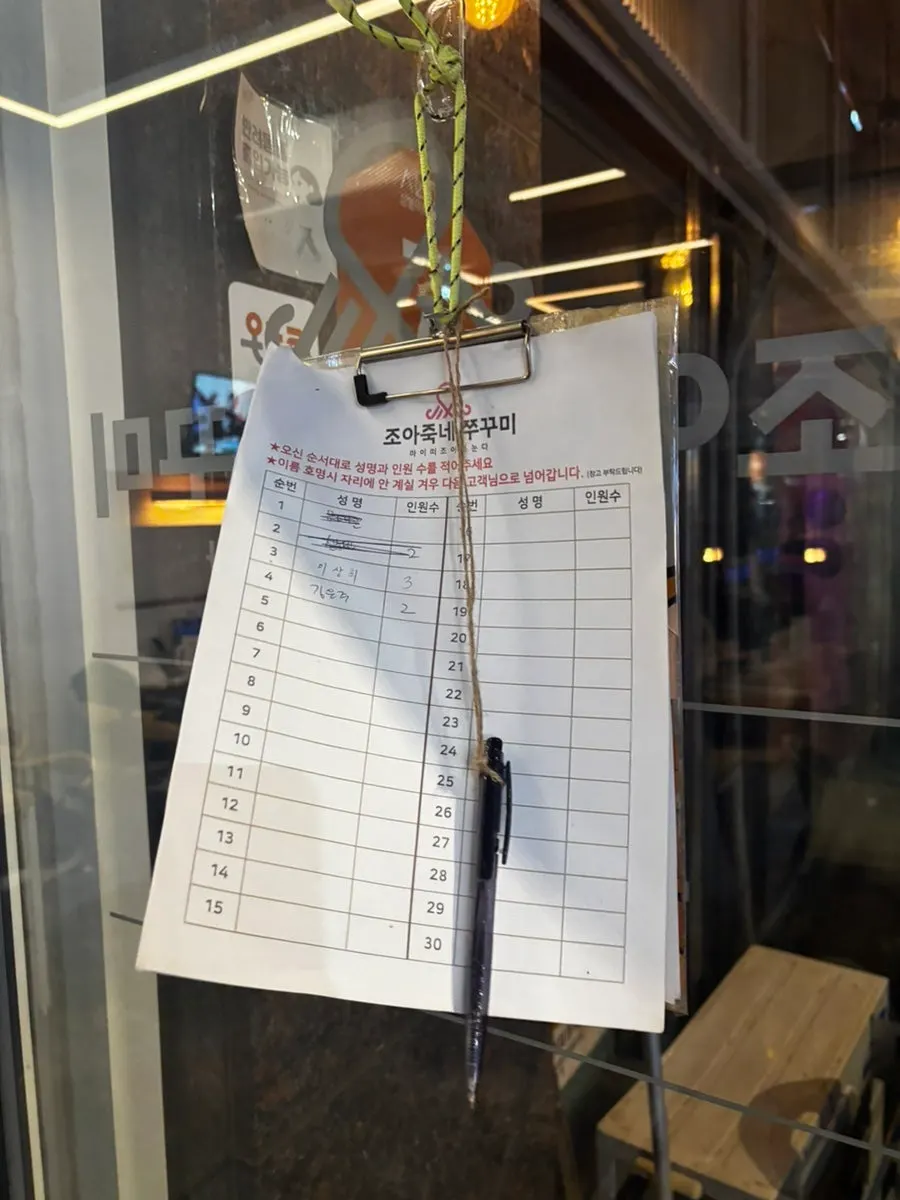 조아죽네 쭈꾸미
★오신 순서대로 성명과 인원 수를 적어주세요
★이름 호명시 자리에 안 계실 겨우 다음 고객님으로 넘어갑니다. (참고 부탁드립니다)
순번 성 명 인원수 순번 성 명 인원수
1
2 2 17
3 이상희 3 18
4 2 19
5 20
6 21
7 22
8 23
9 24
10 25
11 26
12 27
13 28
14 29
15 30
조아